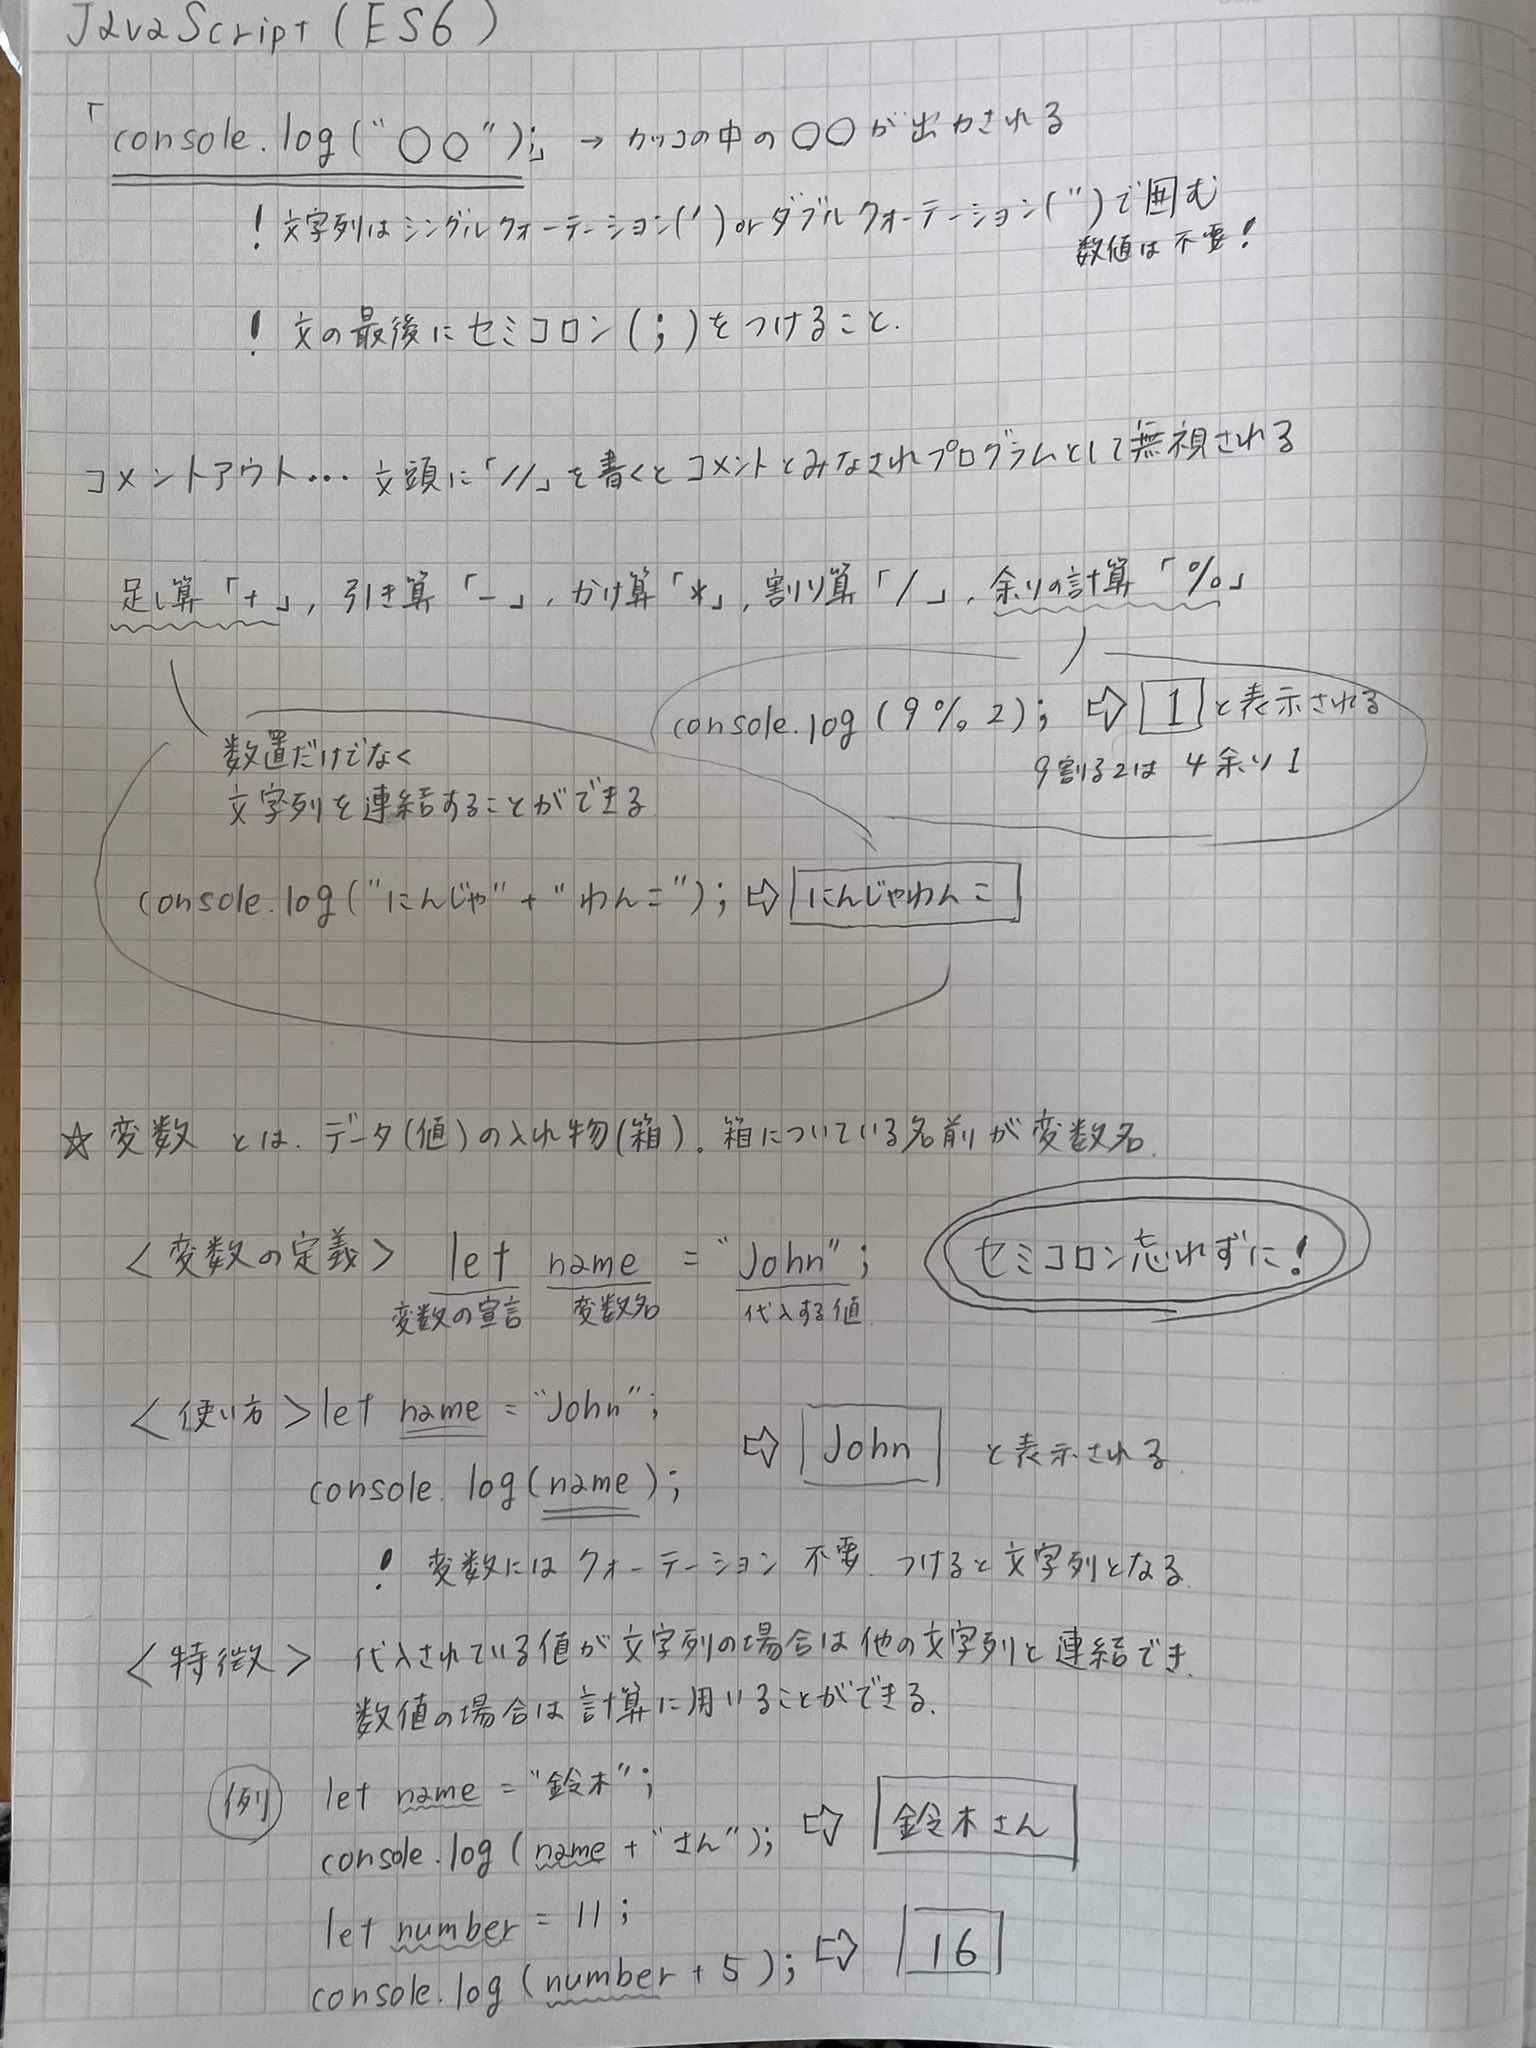 JavaScript (ES6)
「console.log("〇〇");」 → カッコの中の〇〇が出力される
! 文字列はシングルクォーテーション(')orダブルクォーテーション(")で囲む
数値は不要!
! 文の最後にセミコロン(;)をつけること.
コメントアウト... 文頭に「//」を書くとコメントとみなされプログラムとして無視される
足し算「+」, 引き算「-」, かけ算「*」, 割り算「/」, 余りの計算「%」
console.log(9%2); ⇨ 1 と表示される
9割る2は 4 余り 1
数置だけでなく
文字列を連結することができる
console.log("にんじゃ"+"わんこ"); ⇨ にんじゃわんこ
☆ 変数 とは、データ(値)の入れ物(箱)。箱についている名前が変数名.
<変数の定義> let name = "John"; セミコロン忘れずに!
変数の宣言 変数名 代入する値
<使い方> let name = "John";
console.log(name); ⇨ John と表示される
! 変数にはクォーテーション不要. つけると文字列となる
<特徴> 代入されている値が文字列の場合は他の文字列と連結でき.
数値の場合は計算に用いることができる.
例 let name = "鈴木";
console.log(name + "さん"); ⇨ 鈴木さん
let number = 11;
console.log(number + 5); ⇨ 16